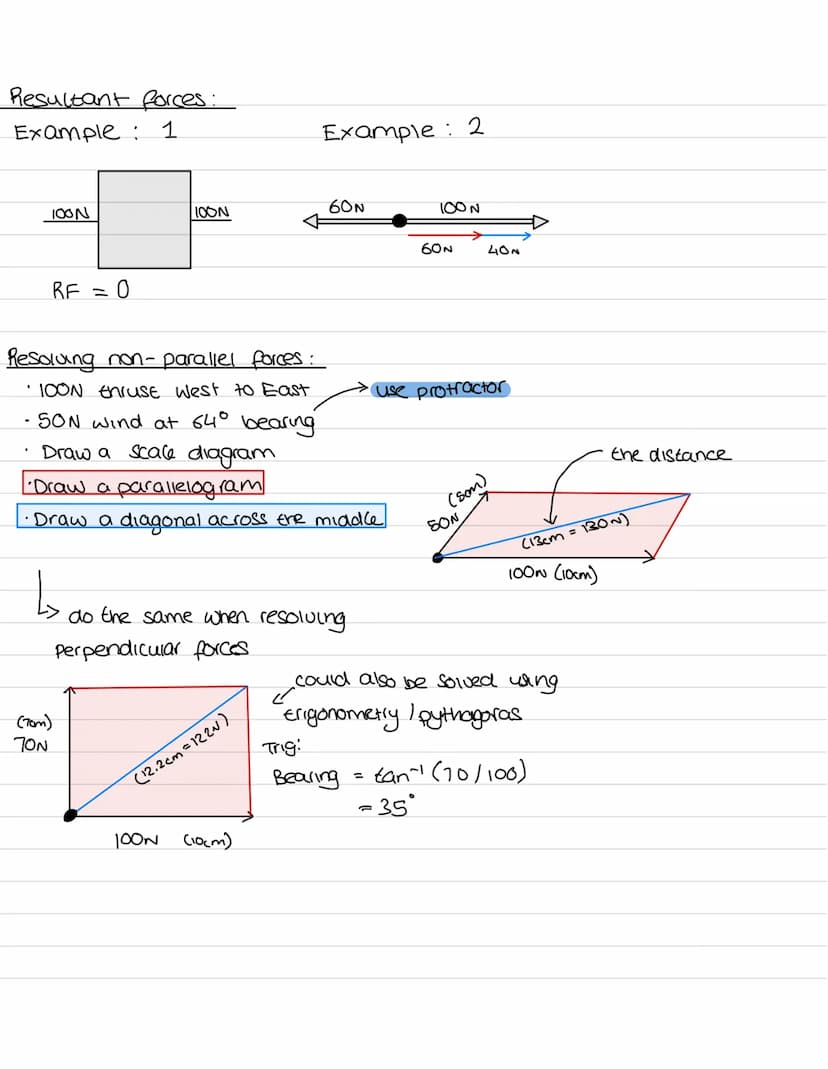 Resultant forces:
Example : 1
Example : 2
100N
100N
60N
100N
60N
40N
RF = 0
Resolving non-parallel forces:
· 100N thruse West to East
use protractor
· 50N wind at 64° bearing
· Draw a scale diagram
the distance
· Draw a parallelogram
· Draw a diagonal across the middle
50N (5cm)
(13cm = 130N)
100N (10cm)
do the same when resolving
perpendicular forces
could also be solved using
trigonometry / pythagoras
(7cm)
70N
(12.2cm = 122N)
Trig:
Bearing = tan⁻¹ (70/100)
= 35°
100N (10cm)